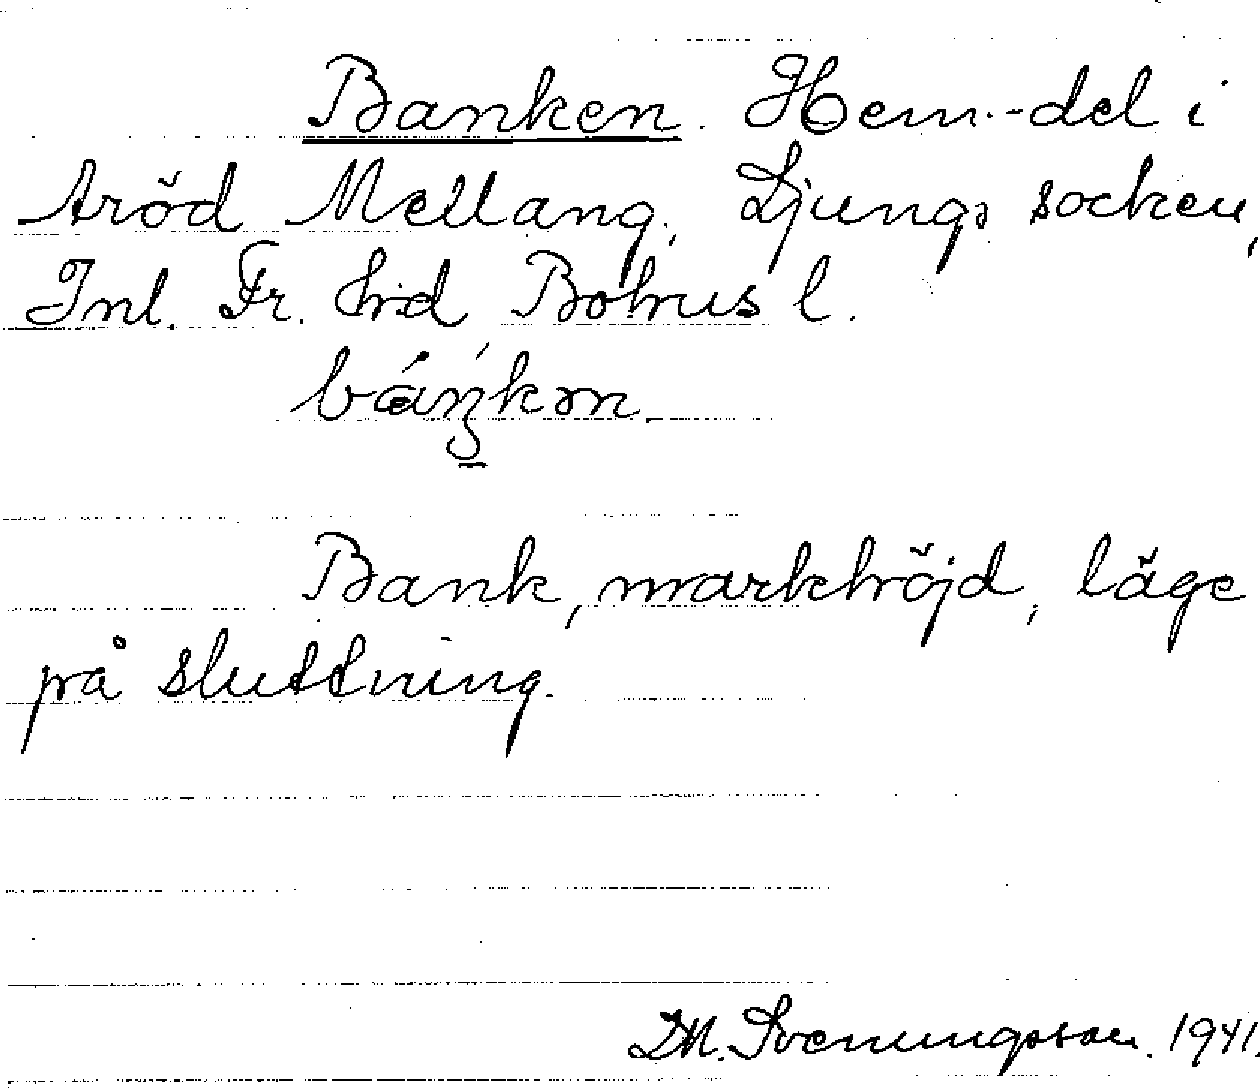 Banken. Hem.-del i
Aröd Mellang, Ljungs socken,
Inl. Fr. hrd Bohus l.
Bank, markhöjd, läge
på sluttning.
M. Svenungsson. 1941.